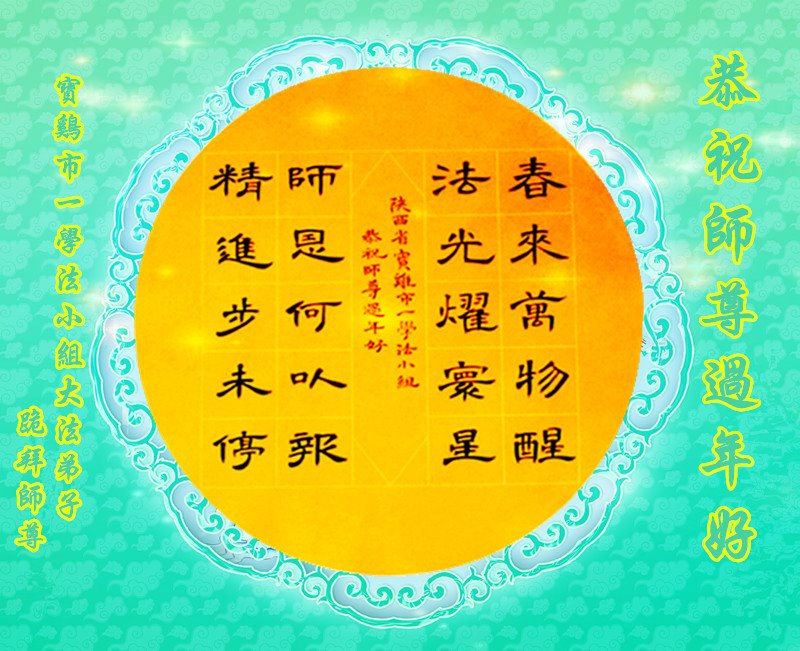 恭祝師尊過年好
春來萬物醒
法光耀寰星
陝西省寶雞市一學法小組
恭祝師尊過年好
師恩何以報
精進步未停
寶鷄市一學法小組大法弟子
跪拜師尊